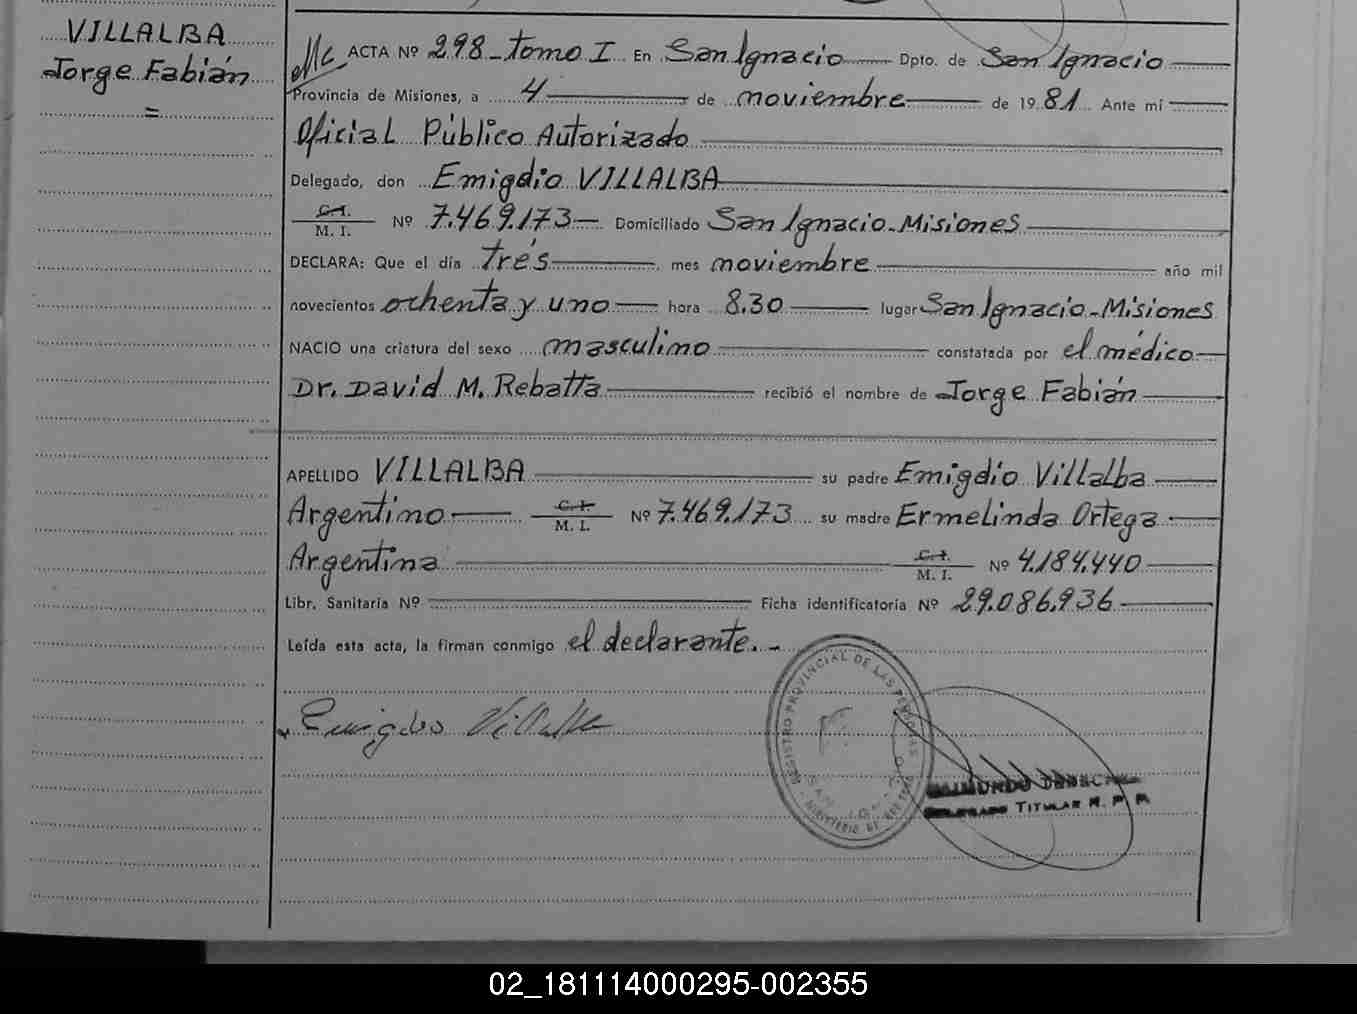 VILLALBA
Jorge Fabián
=
Mc ACTA Nº 298 - tomo I En San Ignacio Dpto. de San Ignacio
Provincia de Misiones, a 4 de noviembre de 1981 Ante mi
Oficial Público Autorizado
Delegado, don Emigdio VILLALBA
C. I.
M. I. Nº 7.469.173 Domiciliado San Ignacio - Misiones
DECLARA: Que el día trés mes noviembre año mil
novecientos ochenta y uno hora 8.30 lugar San Ignacio - Misiones
NACIO una criatura del sexo masculino constatada por el médico
Dr. David M. Rebatta recibió el nombre de Jorge Fabián
APELLIDO VILLALBA su padre Emigdio Villalba
Argentino C. I. M. I. Nº 7.469.173 su madre Ermelinda Ortega
Argentina C. I. M. I. Nº 4.184.440
Libr. Sanitaria Nº Ficha identificatoria Nº 29.086.936
Leída esta acta, la firman conmigo el declarante. -
Emigdio Villalba
REGISTRO PROVINCIAL DE LAS PERSONAS
SAN
MINISTERIO DE
DELEGADO TITULAR R. P. P.
02_181114000295-002355